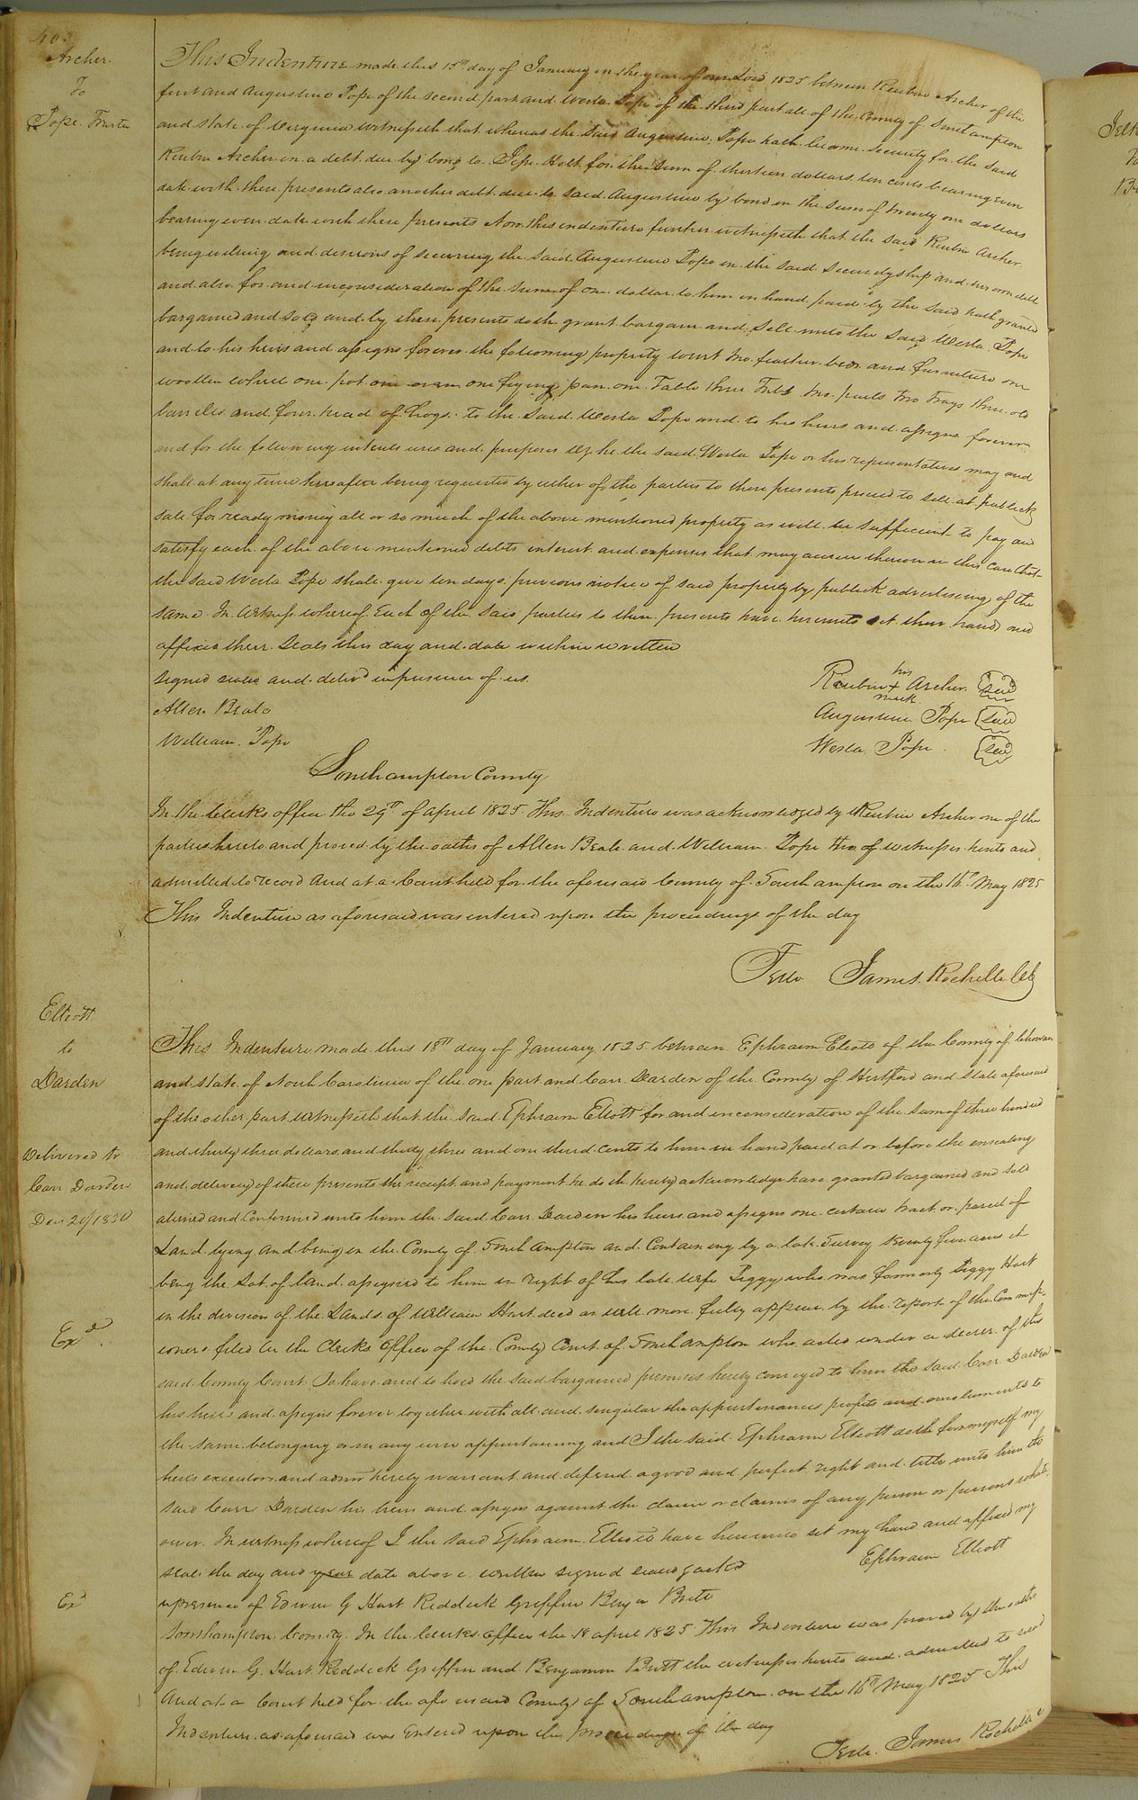 403
Archer
To
Pope Trustee
This Indenture made this 15th day of January in the year of our Lord 1825 between Reubin Archer of the
first and Augustine Pope of the second part and Wesla Pope of the third part all of the County of Southampton
and State of Virginia witnesseth that whereas the said Augustine Pope hath become security for the said
Reubin Archer in a debt due by bond to Holt for the sum of thirteen dollars ten cents bearing even
date with these presents also another debt due to said Augustine by bond in the sum of twenty one dollars
bearing even date with these presents Now this indenture further witnesseth that the said Reubin Archer
being willing and desirous of securing the said Augustine Pope in the said securityship and his own debt
and also for and in consideration of the sum of one dollar to him in hand paid by the said hath granted
bargained and sold and by these presents doth grant bargain and sell unto the said Wesla Pope
and to his heirs and assigns forever the following property towit two feather beds and furniture one
woollen wheel one pot one oven one frying pan one Table three Tubs two pails two Trays three old
barrels and four head of hogs. To the said Wesla Pope and to his heirs and assigns forever
and for the following intents uses and purposes he the said Wesla Pope or his representatives may and
shall at any time hereafter being requested by either of the parties to these presents proceed to sell at publick
sale for ready money all or so much of the above mentioned property as will be sufficient to pay and
satisfy each of the above mentioned debts interest and expenses that may accrue thereon in this case that
the said Wesla Pope shall give ten days previous notice of said property by publick advertising of the
same In witness whereof Each of the said parties to these presents have hereunto set their hands and
affixed their seals this day and date within written
signed sealed and delivd in presence of us
Allen Beale
William Pope
his
Reubin + Archer Seal
mark
Augustine Pope Seal
Wesla Pope Seal
Southampton County
In the Clerks office the 29th of April 1825 This Indenture was acknowledged by Reubin Archer one of the
parties hereto and proved by the oaths of Allen Beale and William Pope two of witnesses hereto and
admitted to record And at a Court held for the aforesaid County of Southampton on the 16th May 1825
This Indenture as aforesaid was entered upon the proceedings of the day
Teste James Rochelle Clk
Elliott
to
Darden
Delivered to
Carr Darden
Dec 20/1830
Exd
Exd
This Indenture made this 18th day of January 1825 between Ephraim Eliott of the County of Chowan
and State of North Carolina of the one part and Carr Darden of the County of Hertford and State aforesaid
of the other part witnesseth that the said Ephraim Eliott for and in consideration of the sum of three hundred
and thirty three dollars and thirty three and one third cents to him in hand paid at or before the ensealing
and delivery of these presents the receipt and payment he doth hereby acknowledge have granted bargained and sold
aliened and Confirmed unto him the said Carr Darden his heirs and assigns one certain tract or parcel of
Land lying and being in the County of Southampton and Containing by a late Survey seventy five acres it
being the Lot of land assigned to him in right of his late wife Peggy who was formerly Peggy Hart
in the division of the Lands of William Hart decd as will more fully appear by the report of the Commiss-
ioners filed in the Clerks Office of the County Court of Southampton who acted under a decree of the
said County Court To have and to hold the said bargained premises hereby conveyed to him the said Carr Darden
his heirs and assigns forever together with all and singular the appurtenances profits and emoluments to
the same belonging or in any wise appertaining and I the said Ephraim Elliott doth for myself my
heirs executors and admrs hereby warrant and defend a good and perfect right and title unto him the
said Carr Darden his heirs and assigns against the claim or claims of any person or persons whats-
oever In witness whereof I the said Ephraim Elliott have hereunto set my hand and affixed my
seal the day and year date above written signed seald
Ephraim Elliott
in presence of Edwin G Hart Reddick Griffin Benja Britt
Southampton County In the Clerks office the 18 April 1825 This Indenture was proved by the oaths
of Edwin G. Hart Reddick Griffin and Benjamin Britt the witnesses hereto and admitted to record
And at a Court held for the aforesaid County of Southampton on the 16th May 1825 This
Indenture as aforesaid was Entered upon the proceedings of the day
Teste James Rochelle